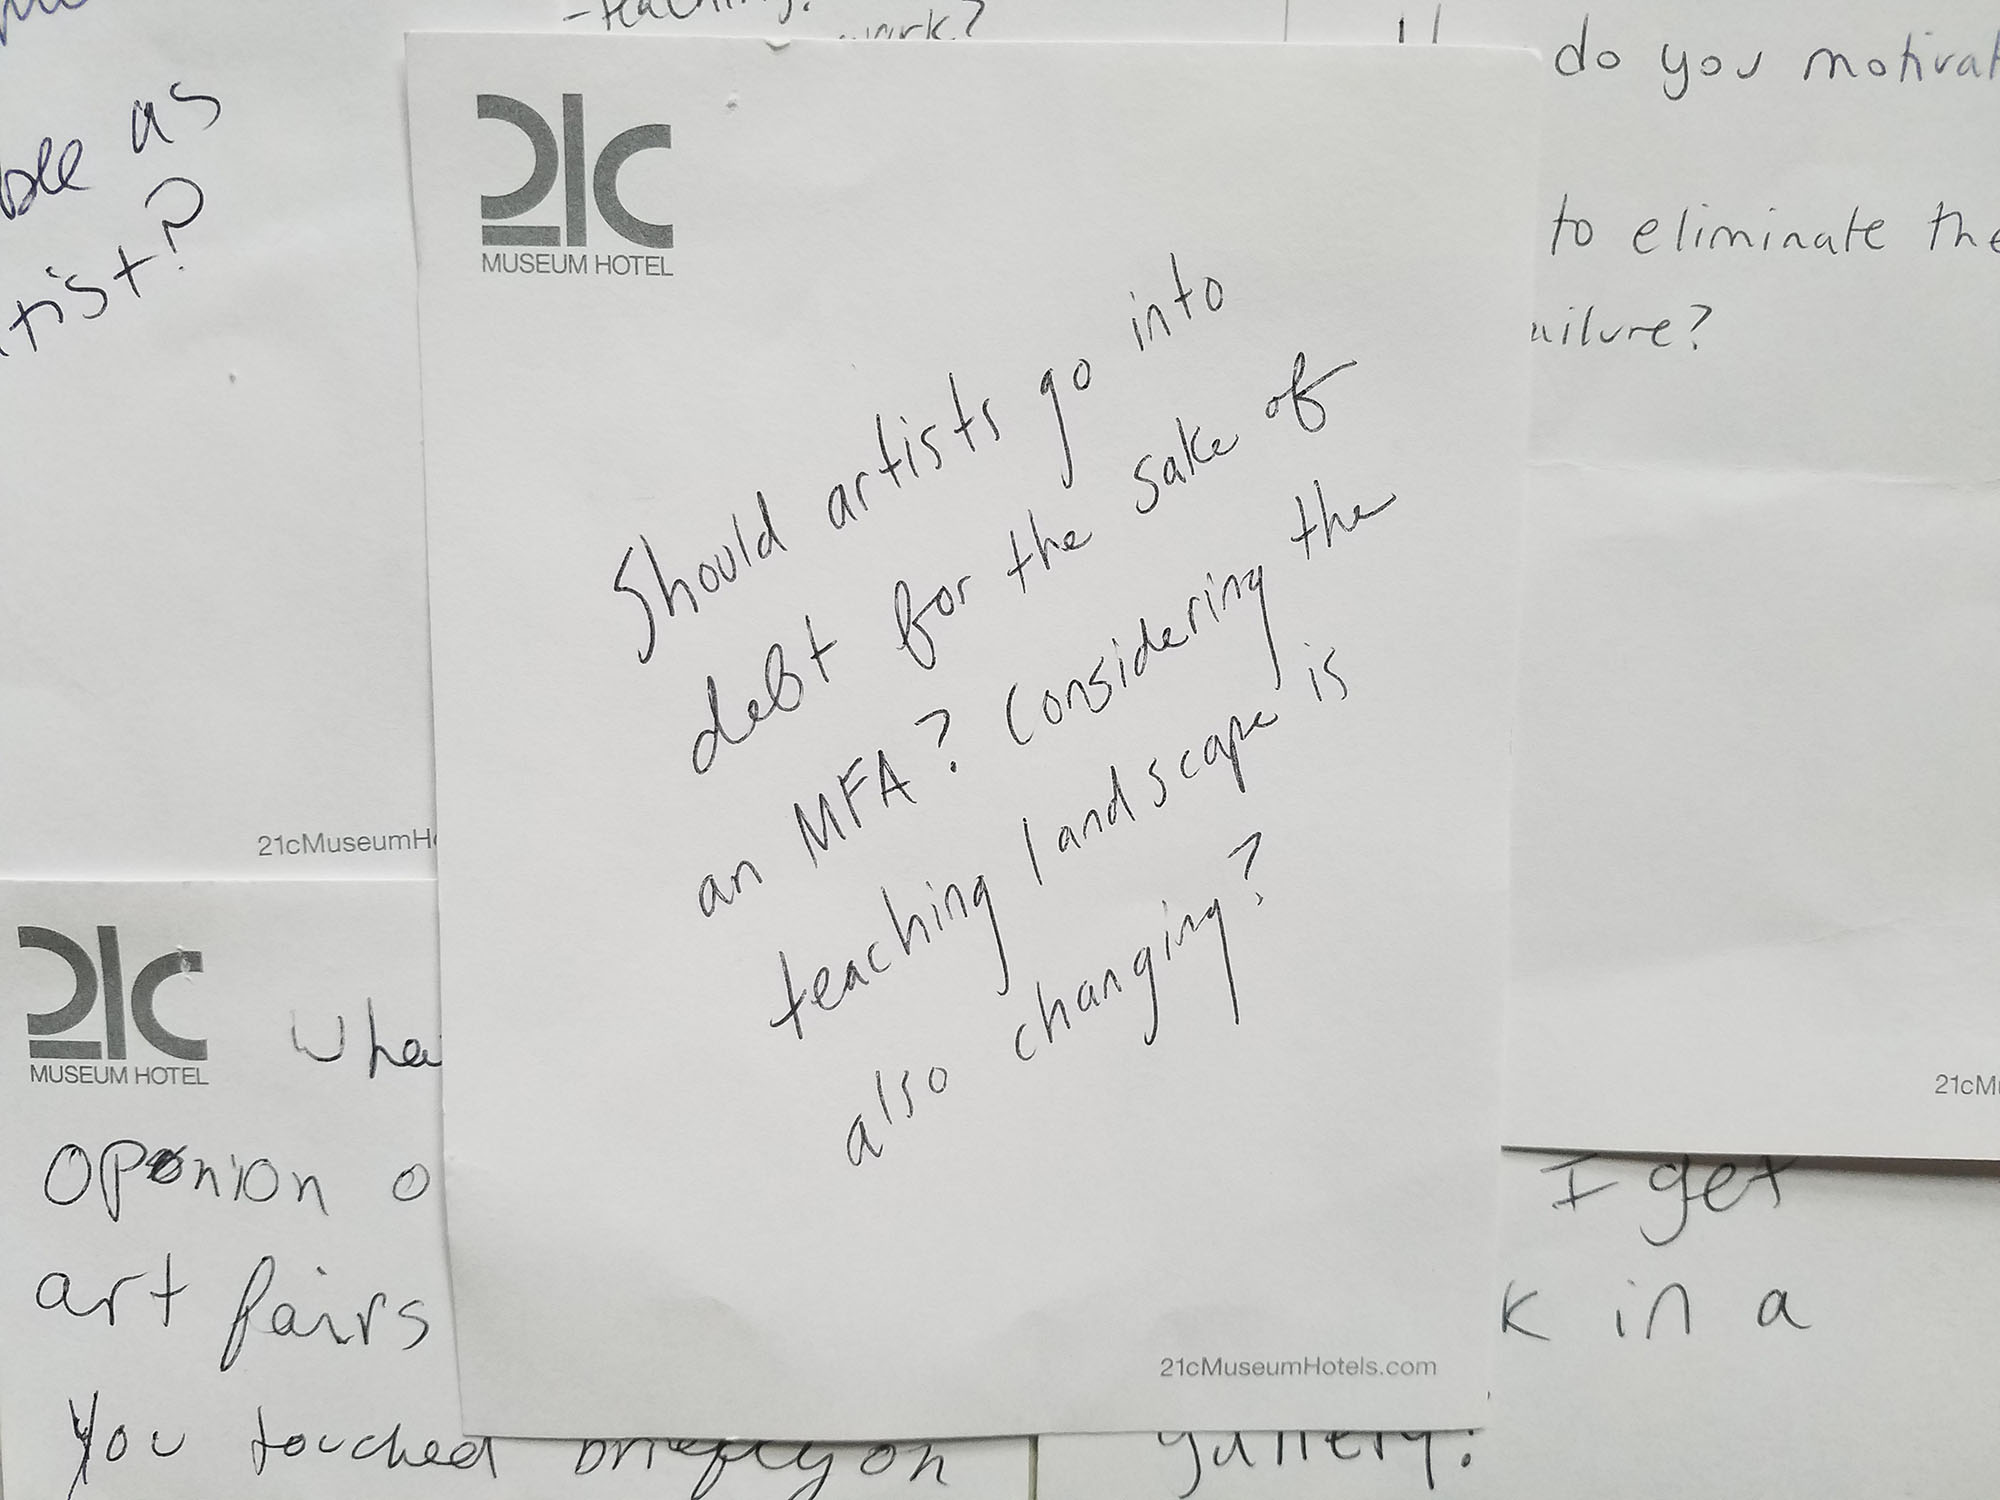 - teaching?
work?
as
tist?
do you
to eliminate the
failure?
21c
MUSEUM HOTEL
Should artists go into
debt for the sake of
an MFA? Considering the
teaching landscape is
also changing?
21cMuseumHotels.com
21c
MUSEUM HOTEL
opinion
art fairs
You touched briefly on
I get
in a
gallery?